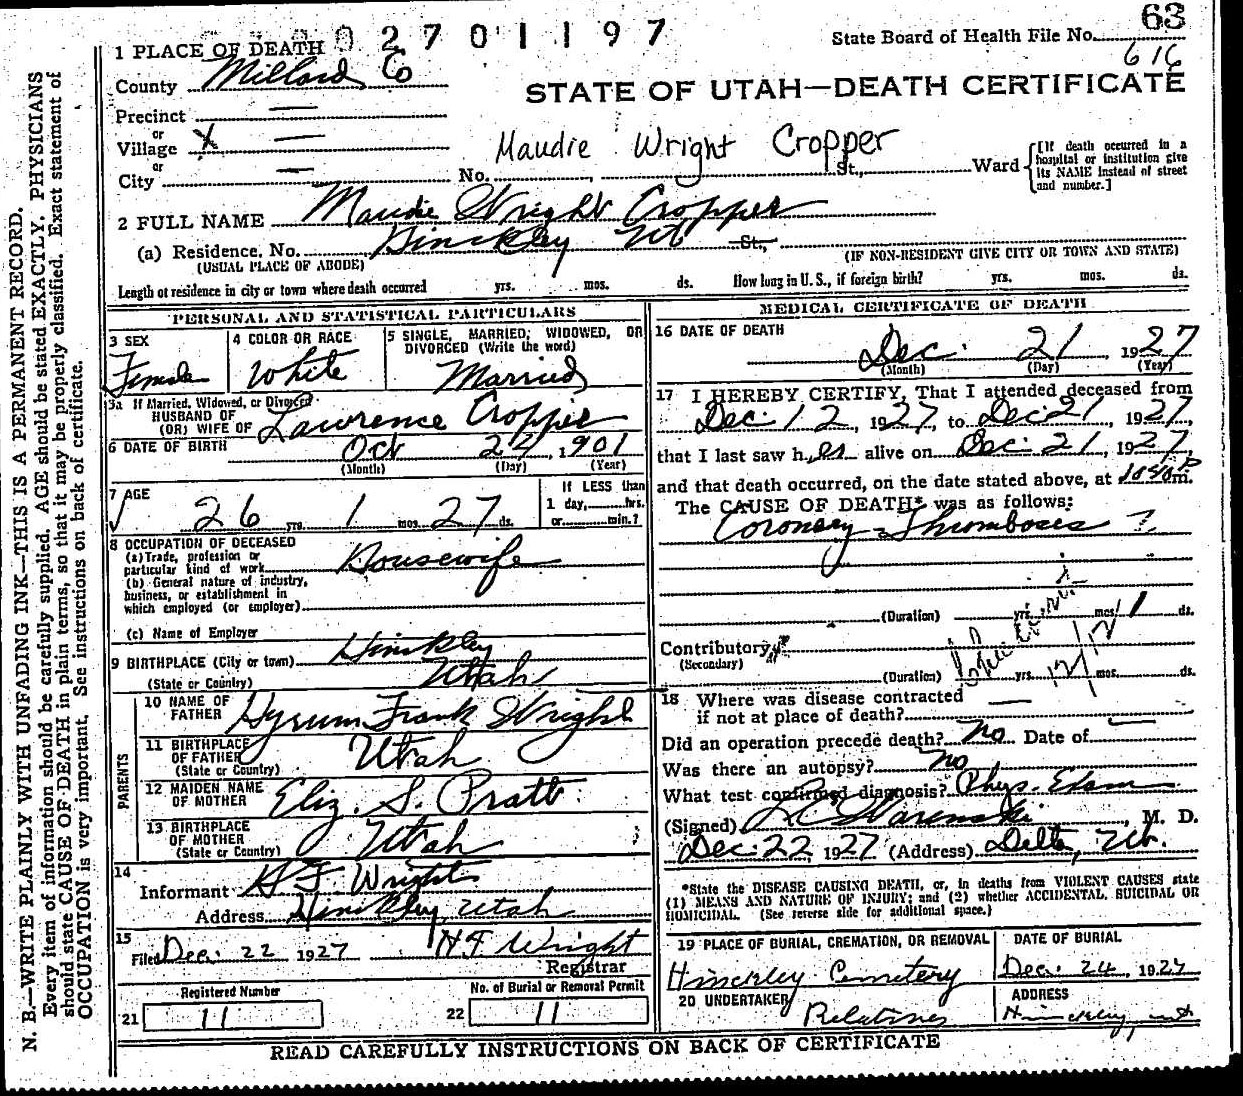 0 2 7 0 1 1 9 7
63
State Board of Health File No.
616
1 PLACE OF DEATH
County Millard Co
STATE OF UTAH—DEATH CERTIFICATE
Precinct —
or
Village X —
or
City —
Maudie Wright Cropper
No. St., Ward
[If death occurred in a hospital or institution give its NAME instead of street and number.]
2 FULL NAME Maudie Wright Cropper
(a) Residence, No. Hinckley Ut St.,
(USUAL PLACE OF ABODE) (IF NON-RESIDENT GIVE CITY OR TOWN AND STATE)
Length of residence in city or town where death occurred yrs. mos. ds. How long in U. S., if foreign birth? yrs. mos. ds.
PERSONAL AND STATISTICAL PARTICULARS
3 SEX
Female
4 COLOR OR RACE
White
5 SINGLE, MARRIED, WIDOWED, OR DIVORCED (Write the word)
Married
5a If Married, Widowed, or Divorced
HUSBAND OF
(OR) WIFE OF Lawrence Cropper
6 DATE OF BIRTH Oct 24, 1901
(Month) (Day) (Year)
7 AGE
26 yrs. 1 mos. 27 ds.
If LESS than
1 day, hrs.
or min.?
8 OCCUPATION OF DECEASED
(a) Trade, profession or
particular kind of work Housewife
(b) General nature of industry,
business, or establishment in
which employed (or employer)
(c) Name of Employer
9 BIRTHPLACE (City or town) Hinckley
(State or Country) Utah
PARENTS
10 NAME OF
FATHER Hyrum Frank Wright
11 BIRTHPLACE
OF FATHER Utah
(State or Country)
12 MAIDEN NAME
OF MOTHER Eliz. S. Pratt
13 BIRTHPLACE
OF MOTHER Utah
(State or Country)
14
Informant H F Wright
Address Hinckley, Utah
15
Filed Dec. 22 1927 H F Wright
Registrar
Registered Number
21 11
No. of Burial or Removal Permit
22 11
MEDICAL CERTIFICATE OF DEATH
16 DATE OF DEATH
Dec. 21, 1927
(Month) (Day) (Year)
17 I HEREBY CERTIFY, That I attended deceased from
Dec. 12, 1927, to Dec 21, 1927,
that I last saw her alive on Dec. 21, 1927,
and that death occurred, on the date stated above, at m.
The CAUSE OF DEATH* was as follows:
Coronary Thromboses ?
(Duration) yrs. mos. 1 ds.
Contributory
(Secondary)
(Duration) yrs. mos. ds.
18 Where was disease contracted
if not at place of death? —
Did an operation precede death? no Date of —
Was there an autopsy? no
What test confirmed diagnosis? Phys. Exam
(Signed) M. D.
Dec. 22, 1927 (Address) Delta, Ut.
*State the DISEASE CAUSING DEATH, or, in deaths from VIOLENT CAUSES state
(1) MEANS AND NATURE OF INJURY; and (2) whether ACCIDENTAL, SUICIDAL OR
HOMICIDAL. (See reverse side for additional space.)
19 PLACE OF BURIAL, CREMATION, OR REMOVAL
Hinckley Cemetery
DATE OF BURIAL
Dec. 24, 1927
20 UNDERTAKER
Relatives
ADDRESS
Hinckley, Ut
READ CAREFULLY INSTRUCTIONS ON BACK OF CERTIFICATE
N. B.—WRITE PLAINLY WITH UNFADING INK—THIS IS A PERMANENT RECORD.
Every item of information should be carefully supplied. AGE should be stated EXACTLY. PHYSICIANS
should state CAUSE OF DEATH in plain terms, so that it may be properly classified. Exact statement of
OCCUPATION is very important. See instructions on back of certificate.